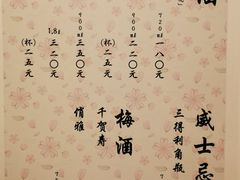 酒
720ml 一八〇元
900ml 三二〇元
(杯)二五元
900ml 三五〇元
1.8l 三二〇元
(杯)二五元
威士忌
三得利角瓶
梅酒
千賀寿
俏雅